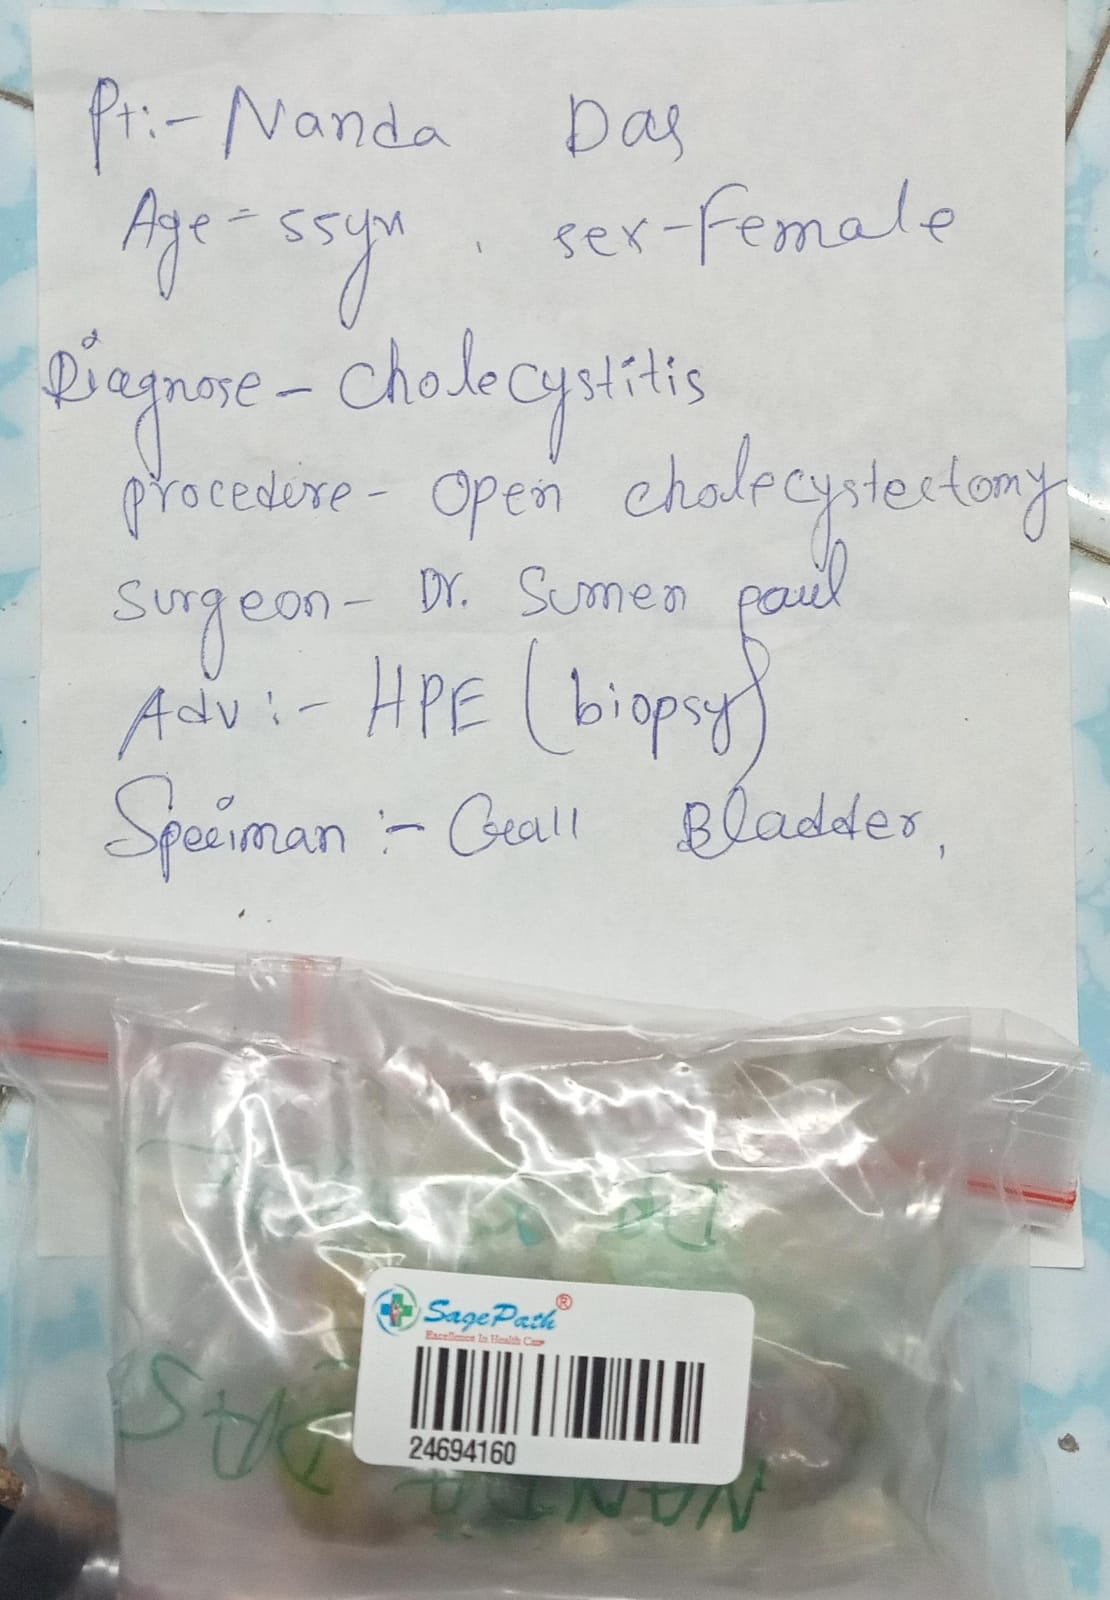 Pt:- Nanda Das
Age = 55yr , sex - Female
Diagnose - Cholecystitis
procedure - Open cholecystectomy
surgeon - Dr. Sumen paul
Adv :- HPE (biopsy)
Speciman :- Gall Bladder,
SagePath®
Excellence In Health Care
24694160
NANDA DAS